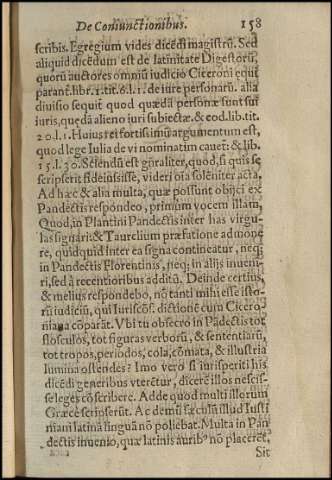 De Coniunctionibus. 158
scribis. Egregium vides dicẽdi magistrũ. Sed
aliquid dicẽdum est de latinitate Digestorũ,
quorũ auctores omniũ iudicio Ciceroni equi
parant̃. libr. 1. tit. 6. l. 1. de iure personarũ. alia
diuisio sequit̃ quod quædã personæ sunt sui
iuris, quędã alieno iuri subiectæ. & eod. lib. tit.
20. l. 1. Huius rei fortissimũ argumentum est,
quod lege Iulia de vi nominatim cauet̃: & lib.
15. l. 30. Sciendũ est gñraliter, quod, si quis se
scripserit fideiussisse, videri oĩa solẽniter acta,
Ad hæc & alia multa, quæ possunt obijci ex
Pandectis respondeo, primùm vocem illam,
Quod, in Plantini Pandectis inter has virgu-
las signari: & Taurelium præfatione admone
re, quidquid inter ea signa contineatur, neq;
in Pandectis Florentinis, neq; in alijs inueni-
ri, sed à recentioribus additũ. Deinde certius,
& melius respondebo, nõ tanti mihi esse isto-
rũ iudiciũ, qui Iuriscõs. dictionẽ cum Cicero-
niana cõparãt. Vbi tu obsecro in Pãdectis tot
flosculos, tot figuras verborũ, & sententiarũ,
tot tropos, periodos, cola, cõmata, & illustria
lumina ostendes? Imo vero si iurisperiti his
dicẽdi generibus vterẽtur, dicerẽ illos nescis-
se leges cõscribere. Adde quod multi illorum
Græce scripserũt. Ac demũ sæculũ illud Iusti
niani latinã linguã nõ poliebat. Multa in Pan
dectis inuenio, quæ latinis aurib⁹ nõ placerẽt,
Sit